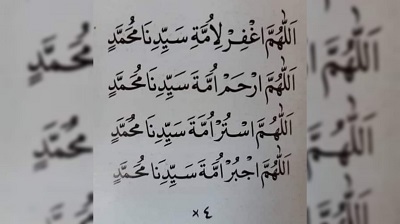 اَللّٰهُمَّ اغْفِرْ لِأُمَّةِ سَيِّدِنَا مُحَمَّدٍ
اَللّٰهُمَّ ارْحَمْ اُمَّةَ سَيِّدِنَا مُحَمَّدٍ
اَللّٰهُمَّ اسْتُرْ اُمَّةَ سَيِّدِنَا مُحَمَّدٍ
اَللّٰهُمَّ اجْبُرْ اُمَّةَ سَيِّدِنَا مُحَمَّدٍ
×٤